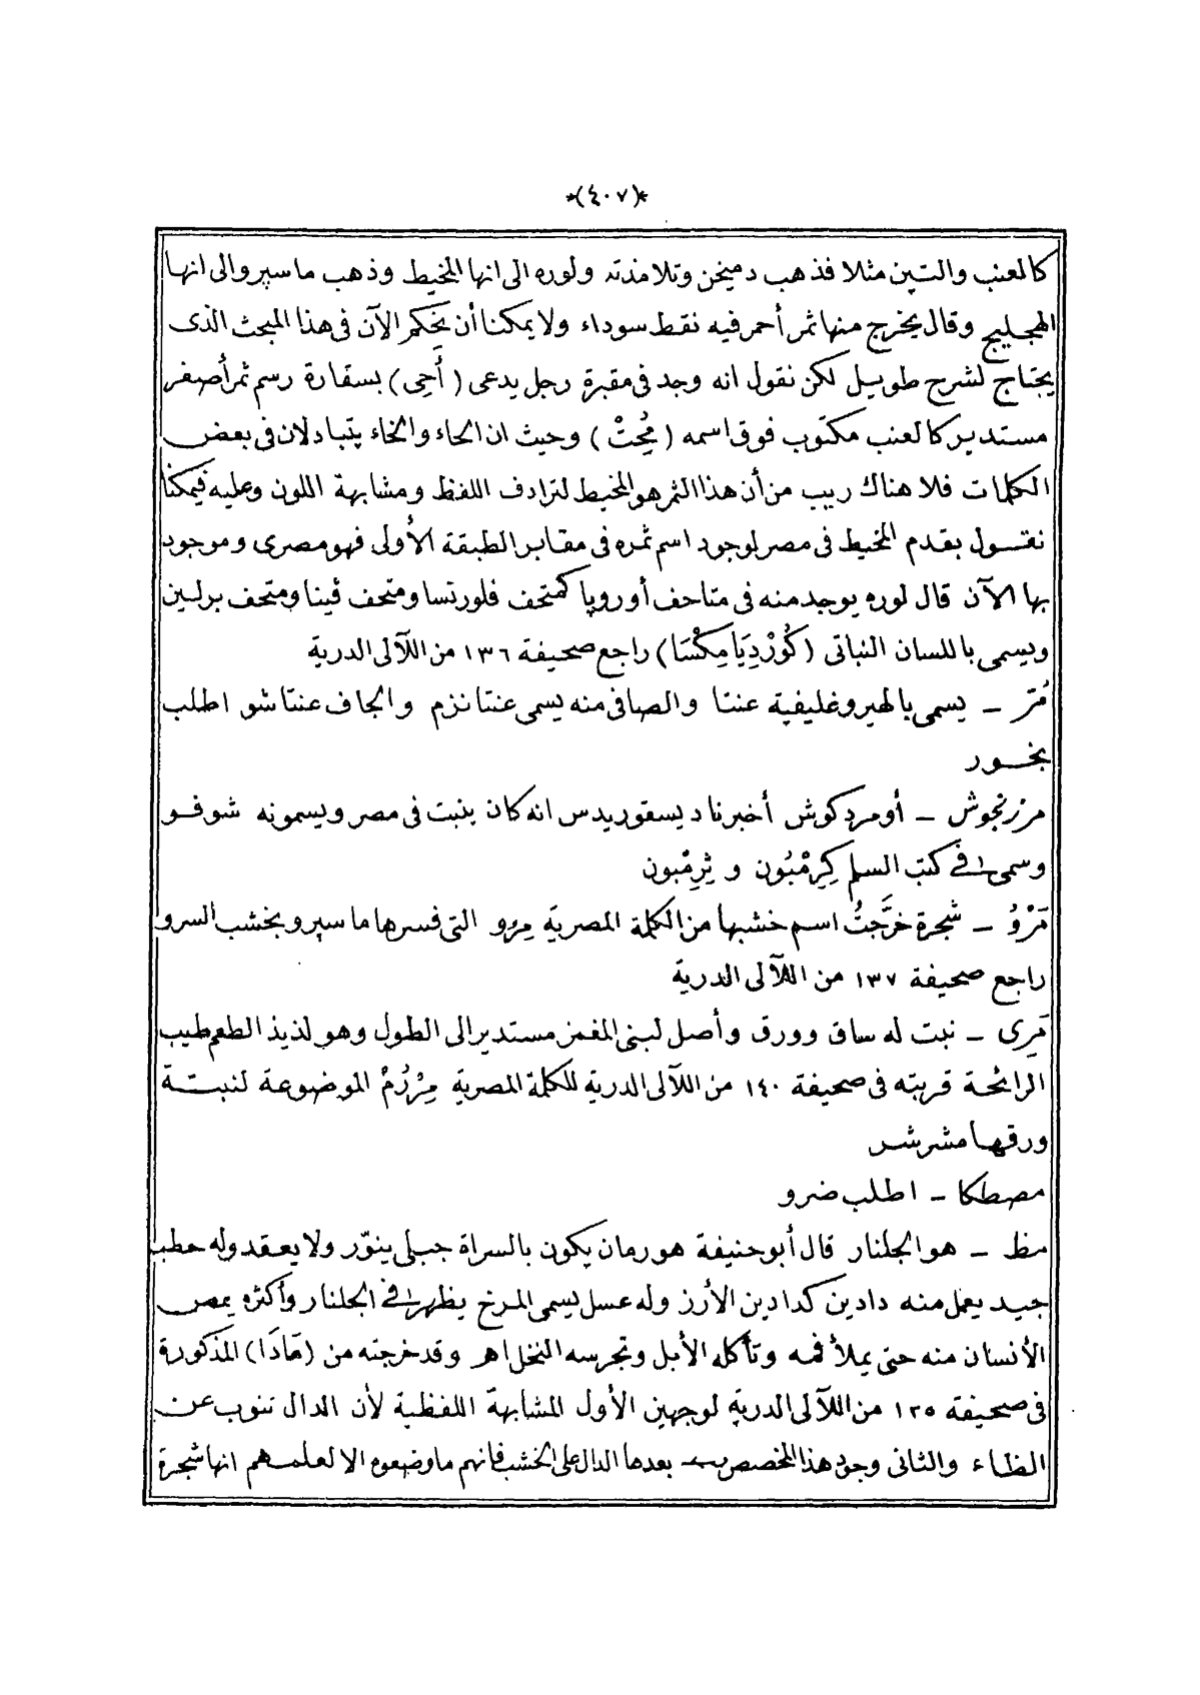 *(٤٠٧)*
كالعنب والتين مثلا فذهب دميخن وتلامذته ولوره الى انها المخيط وذهب ماسپرو الى انها
الهجليج وقال يخرج منها ثمر أحمر فيه نقط سوداء ولا يمكنا أن نحكم الآن فى هذا المبحث الذى
يحتاج لشرح طويل لكن نقول انه وجد فى مقبرة رجل يدعى (أحِى) بسقارة رسم ثمر أصفر
مستدير كالعنب مكتوب فوق اسمه (مُحِتْ) وحيث ان الحاء والخاء يتبادلان فى بعض
الكلمات فلا هناك ريب من أن هذا الثمر هو المخيط لترادف اللفظ ومشابهة اللون وعليه فيمكنا
نقول بقدم المخيط فى مصر لوجود اسم ثمره فى مقابر الطبقة الأولى فهو مصرى وموجود
بها الآن قال لوره يوجد منه فى متاحف أوروپا كمتحف فلورتسا ومتحف ڤينا ومتحف برلين
ويسمى باللسان النباتى (كُورْدِيَا مِكْسَا) راجع صحيفة ١٣٦ من اللآلى الدرية
مُرّ ـ يسمى بالهيروغليفية عنتا والصافى منه يسمى عنتا نزم والجاف عنتا شو اطلب
بخور
مرزنجوش ـ أو مردكوش أخبرنا ديسقوريدس انه كان ينبت فى مصر ويسمونه شوفو
وسمى فى كتب السلم كِرِمْبُون و ثِرِمْبون
مَرْوُ ـ شجرة خرَّجتُ اسم خشبها من الكلمة المصرية مِرْو التى فسرها ماسپرو بخشب السرو
راجع صحيفة ١٣٧ من اللآلى الدرية
مَرِى ـ نبت له ساق وورق وأصل لبنى المغمز مستدير الى الطول وهو لذيذ الطعم طيب
الرائحة قربته فى صحيفة ١٤٠ من اللآلى الدرية للكلمة المصرية مِرْرُمْ الموضوعة لنبتة
ورقها مشرشر
مصطكا ـ اطلب ضرو
مظ ـ هو الجلنار قال أبو حنيفة هو رمان يكون بالسراة جبلى ينوّر ولا يعقد وله حطب
جيد يعمل منه دادين كدادين الأرز وله عسل يسمى المرخ يظهر فى الجلنار وأكثره يمص
الأنسان منه حتى يملأ فمه وتأكله الأبل وتجرسه النحل اهـ وقد خرجته من (مَادَا) المذكورة
فى صحيفة ١٣٥ من اللآلى الدرية لوجهين الأول المشابهة اللفظية لأن الدال تنوب عن
الظاء والثانى وجود هذا المخصص بعدها الدال على الخشب فانهم ما وضعوه الا لعلمهم انها شجرة